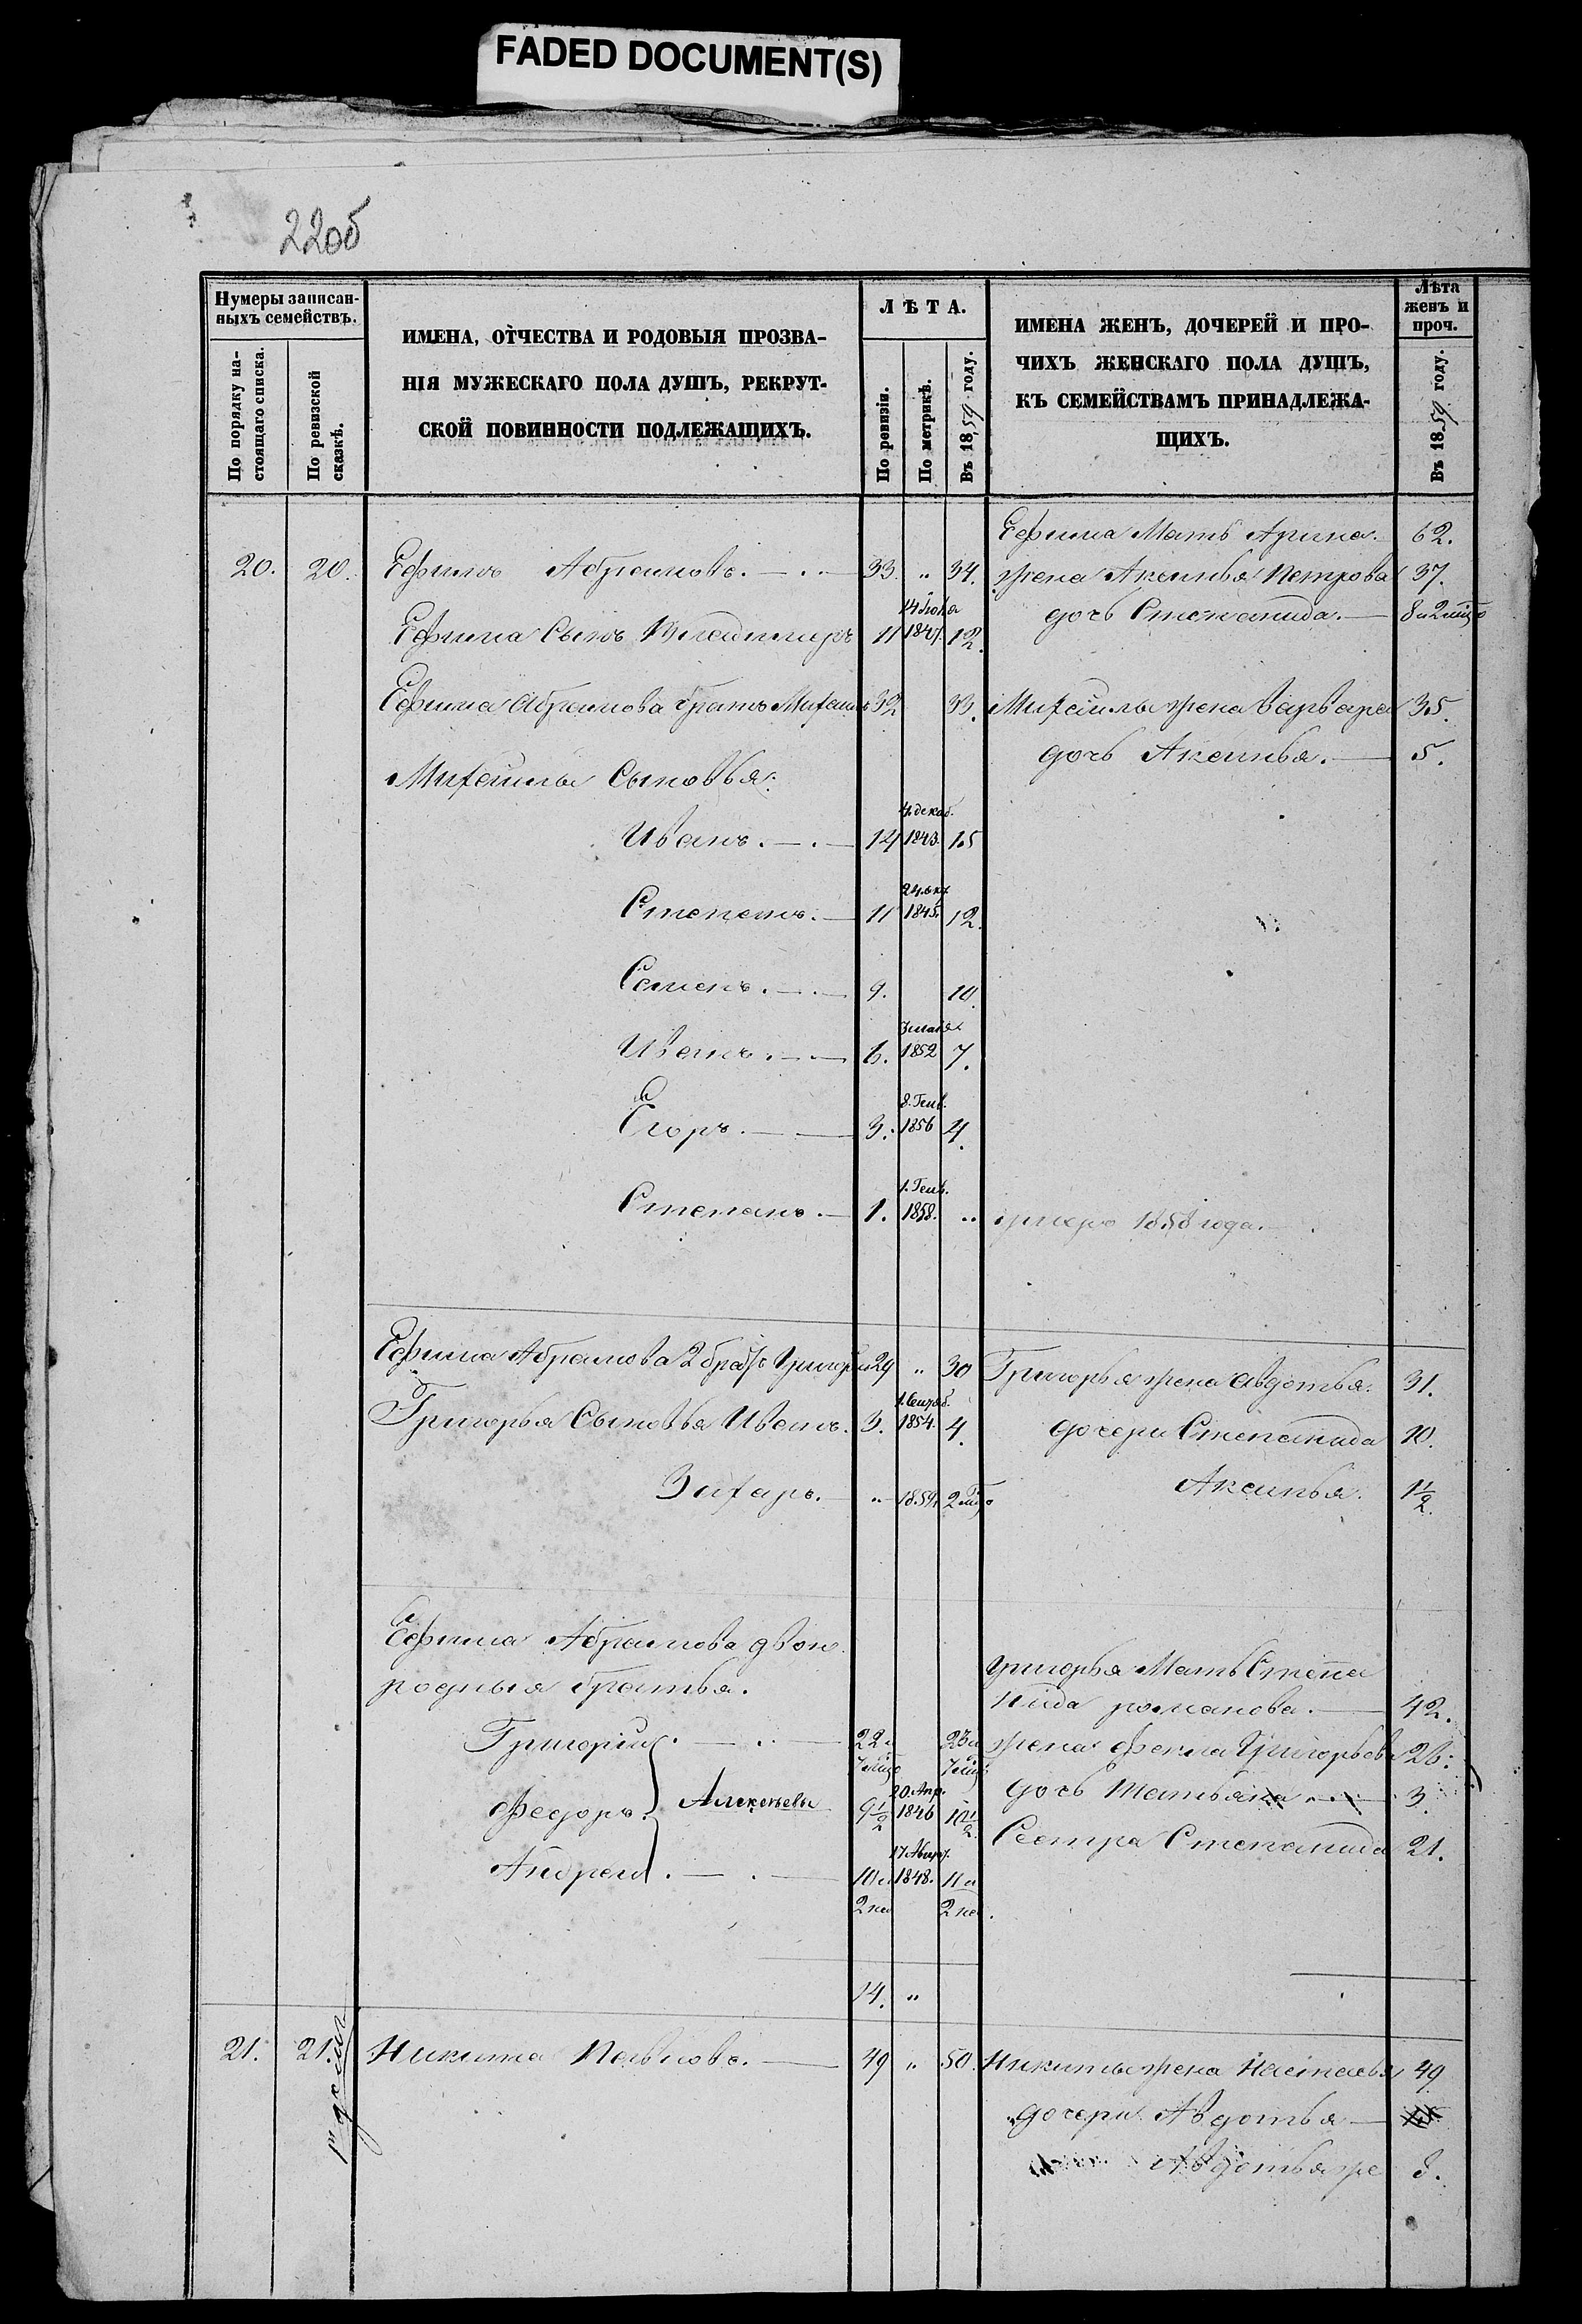 FADED DOCUMENT(S)
22об
Нумеры записан-
ныхъ семействъ.
По порядку на-
стоящаго списка.
По ревизской
сказкѣ.
ИМЕНА, ОТЧЕСТВА И РОДОВЫЯ ПРОЗВА-
НІЯ МУЖЕСКАГО ПОЛА ДУШЪ, РЕКРУТ-
СКОЙ ПОВИННОСТИ ПОДЛЕЖАЩИХЪ.
ЛѢТА.
По ревизіи.
По метрикѣ.
Въ 1859 году.
ИМЕНА ЖЕНЪ, ДОЧЕРЕЙ И ПРО-
ЧИХЪ ЖЕНСКАГО ПОЛА ДУШЪ,
КЪ СЕМЕЙСТВАМЪ ПРИНАДЛЕЖА-
ЩИХЪ.
Лѣта
женъ и
проч.
Въ 1859 году.
Ефима Мать Арина. 62.
20. 20. Ефимъ Абрамовъ. 33. " 34. жена Аксинья Петрова 37.
14 Июля дочь Степанида. 8 и 2 мѣс
Ефима Сынъ Владимиръ 11 1847. 12.
Ефима Абрамова братъ Михаилъ 32 33. Михайлы жена Варвара 35.
дочь Аксинья. 5.
Михайлы Сыновья:
4. декаб.
Иванъ. 14 1843. 15
24. окт
Степанъ. 11 1845. 12.
Семенъ. 9. 10.
3 мая
Иванъ. 6. 1852 7.
8. Генв.
Егоръ. 3. 1856 4.
1. Генв.
Степанъ. 1. 1858. " умеръ 1858 года.
Ефима Абрамова 2 братъ Григорій 29 " 30 Григорья жена Авдотья. 31.
1. Сентяб.
Григорья Сыновья Иванъ. 3. 1854. 4. дочери Степанида 10.
Захаръ. " 1859. 2 Аксинья. 1½.
Ефима Абрамова двою
родныя братья.
Григорья Мать Степа
нида романова. 42.
Григорій 22 и 23 и жена Фекла Григорьева 26.
7 мѣс 7 мѣс
20. Апр. дочь Татьяна 3.
Федоръ Алексѣевы 9½ 1846 10½
Сестра Степанида 21.
17 Авгу.
Андрей 10 и 1848. 11 и
2 нед 2 нед.
14. "
21. 21. Никита Павловъ. 49 " 50. Никиты жена Настасья 49
дочери Авдотья
Авдотья же 8.